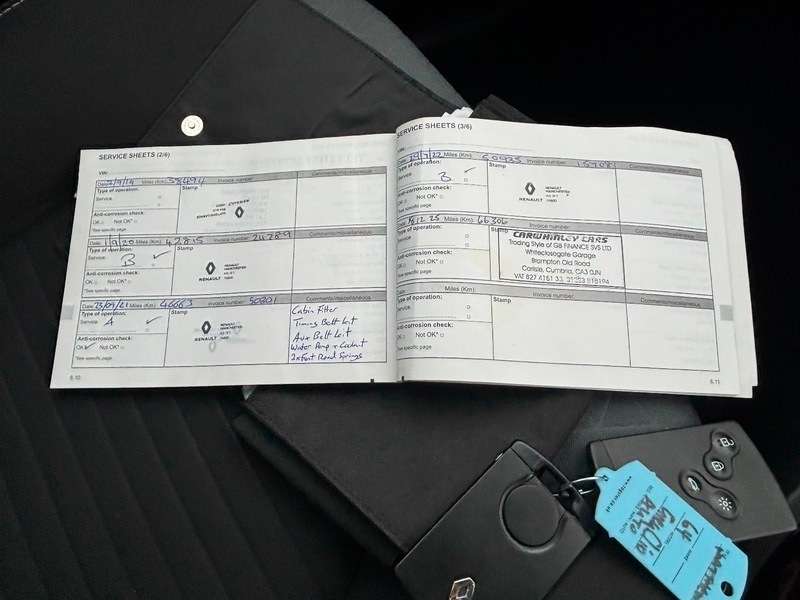 SERVICE SHEETS (2/6)
VIN:
Date: Miles (Km): 38494 Invoice number: Comments/miscellaneous
Type of operation: Stamp
Service
Anti-corrosion check:
OK □ Not OK* □
*See specific page
Date: 1/9/20 Miles (Km): 42815 Invoice number: 24289 Comments/miscellaneous
Type of operation: Stamp
Service B ✓
RENAULT
RENAULT
MANCHESTER
Anti-corrosion check:
OK □ Not OK* □
*See specific page
Date: 23/09/21 Miles (Km): 46663 Invoice number: 50201 Comments/miscellaneous
Type of operation: Stamp
Service A ✓
RENAULT
RENAULT
MANCHESTER
Anti-corrosion check:
OK ✓ Not OK* □
*See specific page
Cabin Filter
Timing Belt Kit
Aux Belt Kit
Water Pump + Coolant
2x Front Road Springs
6.10
SERVICE SHEETS (3/6)
VIN:
Date: 29/7/22 Miles (Km): 50935 Invoice number: Comments/miscellaneous
Type of operation: Stamp
Service B ✓
RENAULT
RENAULT
MANCHESTER
Anti-corrosion check:
OK □ Not OK* □
*See specific page
Date: 12 25 Miles (Km): 66306 Invoice number: Comments/miscellaneous
Type of operation: Stamp
Service
CARWHINLEY CARS
Trading Style of GB FINANCE SVS LTD
Whiteclosegate Garage
Brampton Old Road
Carlisle, Cumbria, CA3 0JN
VAT 827 4151 33
Anti-corrosion check:
OK □ Not OK* □
*See specific page
Date: Miles (Km): Invoice number: Comments/miscellaneous
Type of operation: Stamp
Service
Anti-corrosion check:
OK □ Not OK* □
*See specific page
6.11
64